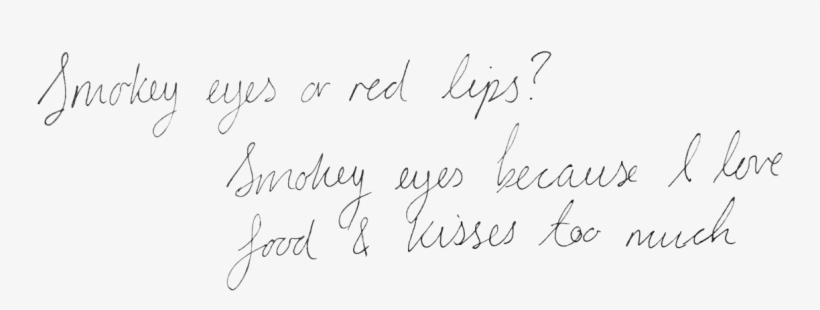 Smokey eyes or red lips?
Smokey eyes because I love
food & kisses too much